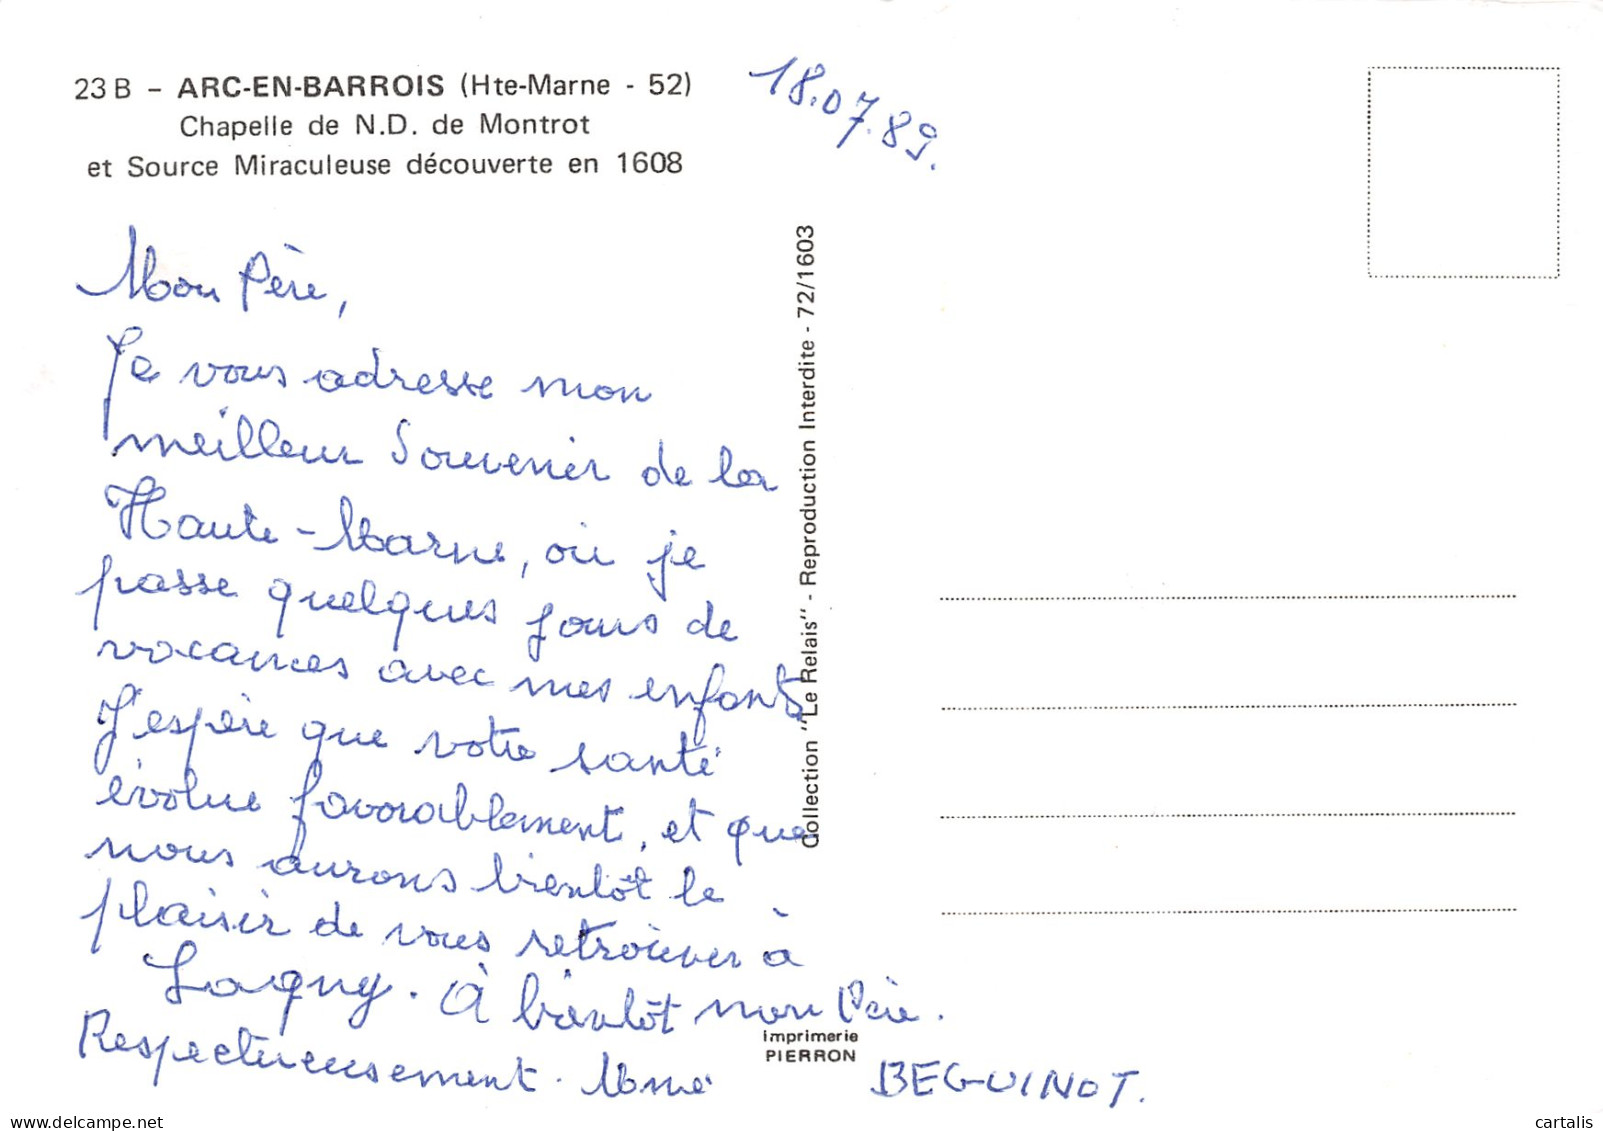 23 B - ARC-EN-BARROIS (Hte-Marne - 52)
Chapelle de N.D. de Montrot
et Source Miraculeuse découverte en 1608
18.07.89.
Mon Père,
Je vous adresse mon
meilleur souvenir de la
Haute-Marne, où je
passe quelques jours de
vacances avec mes enfants
J'espère que votre santé
évolue favorablement, et que
nous aurons bientôt le
plaisir de vous retrouver à
Lagny. À bientôt mon Père.
Respectueusement. Mme BEGUINOT.
Collection "Le Relais" - Reproduction Interdite - 72/1603
Imprimerie
PIERRON
cartalis
www.delcampe.net